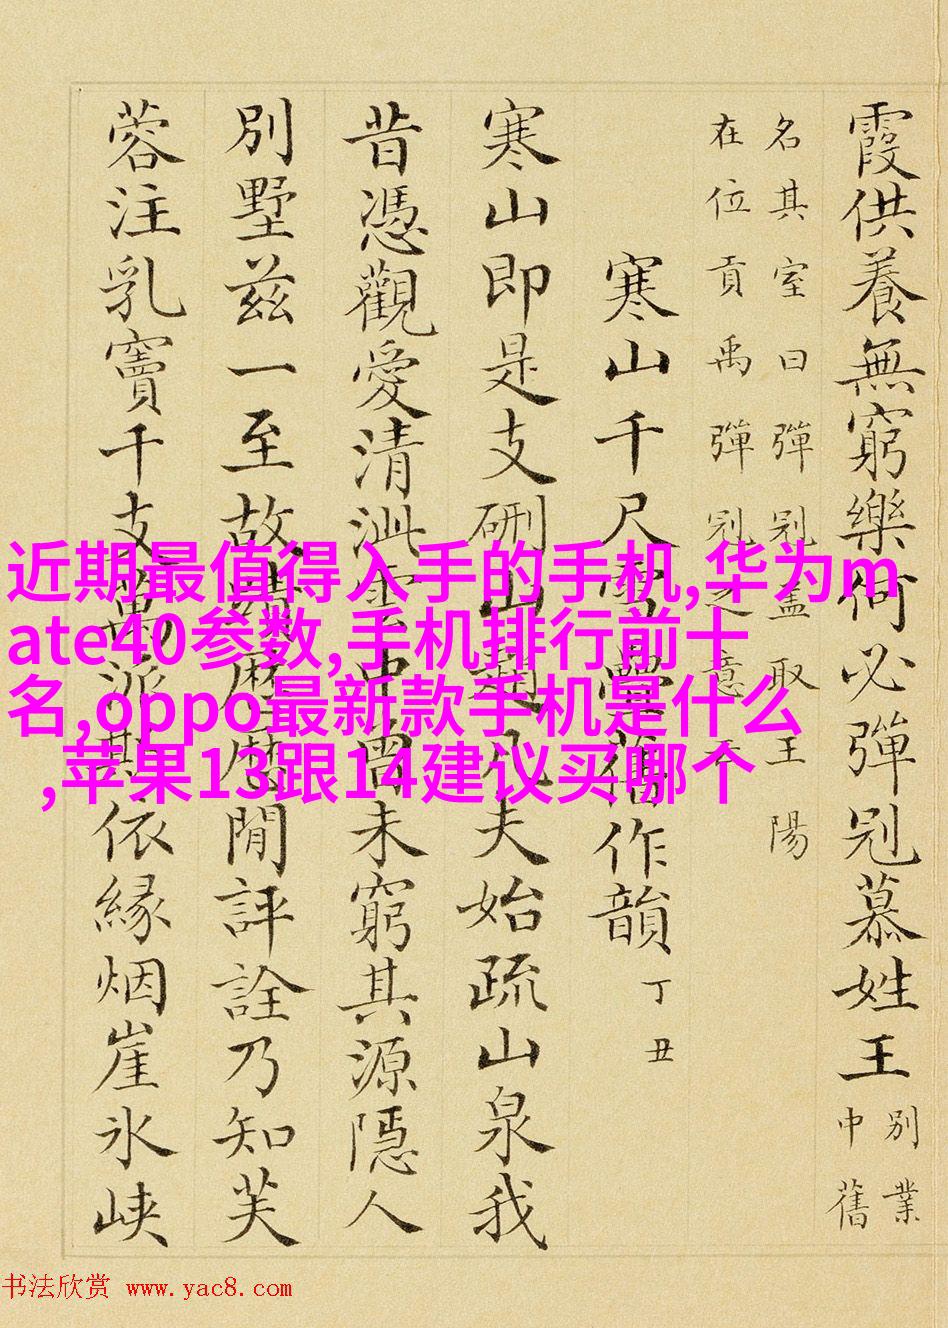 霞供養無窮樂何必彈冠慕姓王
別業
中舊
名其室曰彈冠蓋取王陽
在位貢禹彈冠之意
寒山千尺雪疊舊作韻
丁丑
寒山即是支硎山凡夫始疏山泉我
昔憑觀愛清泚中曾未窮其源隱人
別墅茲一至故蹟歷歷閒評詮乃知芙
蓉注乳竇千支萬派斯依緣烟崖氷峽
近期最值得入手的手机,华为m
ate40参数,手机排行前十
名,oppo最新款手机是什么
,苹果13跟14建议买哪个
书法欣赏 www.yac8.com